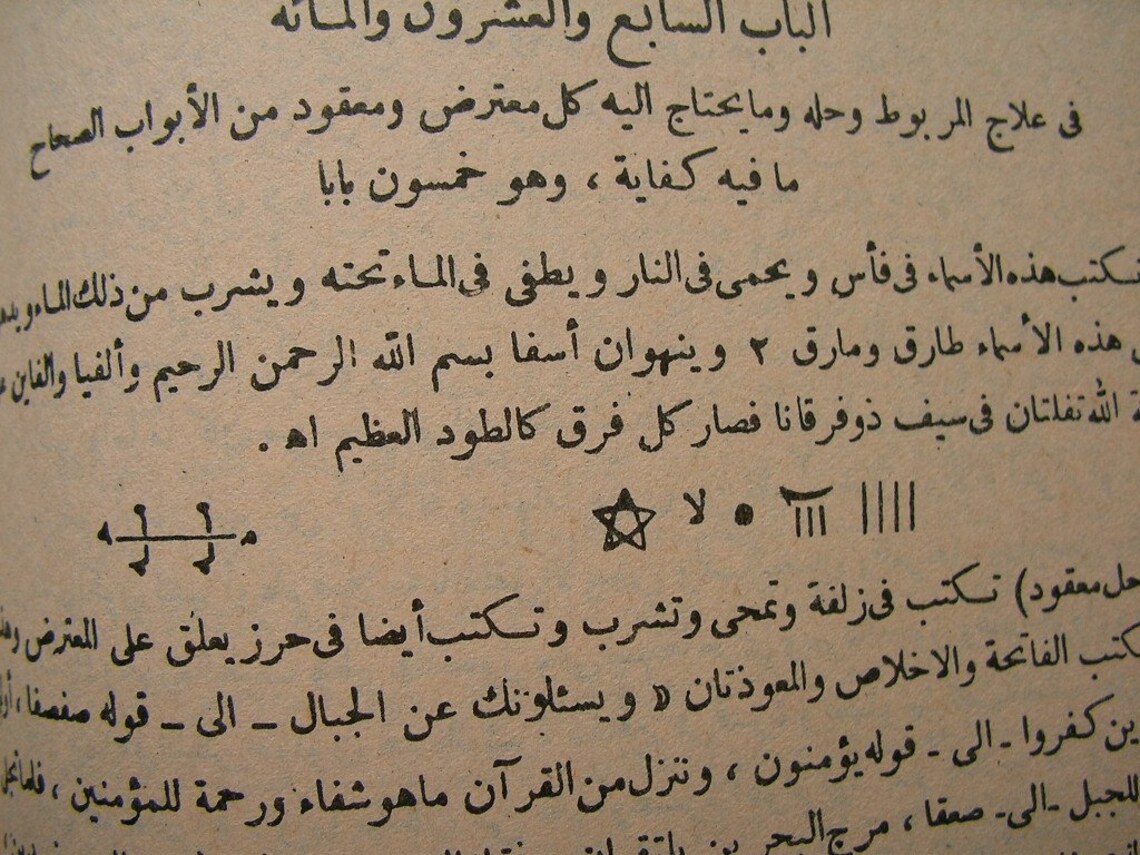 الباب السابع والعشرون والمائه
فى علاج المربوط وحله ومايحتاج اليه كل معترض ومعقود من الأبواب الصحاح
ما فيه كفاية ، وهو خمسون بابا
تكتب هذه الأسماء فى فأس ويحمى فى النار ويطفى فى الماء تحته ويشرب من ذلك الماء
هذه الأسماء طارق ومارق ٢ وينهوان أسفا بسم الله الرحمن الرحيم وألفيا والفاين
الله تفلتان فى سيف ذو فرقانا فصار كل فرق كالطود العظيم اه .
لا
حل معقود) تكتب فى زلفة وتمحى وتشرب وتكتب أيضا فى حرز يعلق على المعترض
الفاتحة والاخلاص والمعوذتان « ويسئلونك عن الجبال ـ الى ـ قوله صفصفا ،
كفروا ـ الى ـ قوله يؤمنون ، وننزل من القرآن ما هو شفاء ورحمة للمؤمنين ،
للجبل ـ الى ـ صعقا ، مرج البحرين يلتقيان